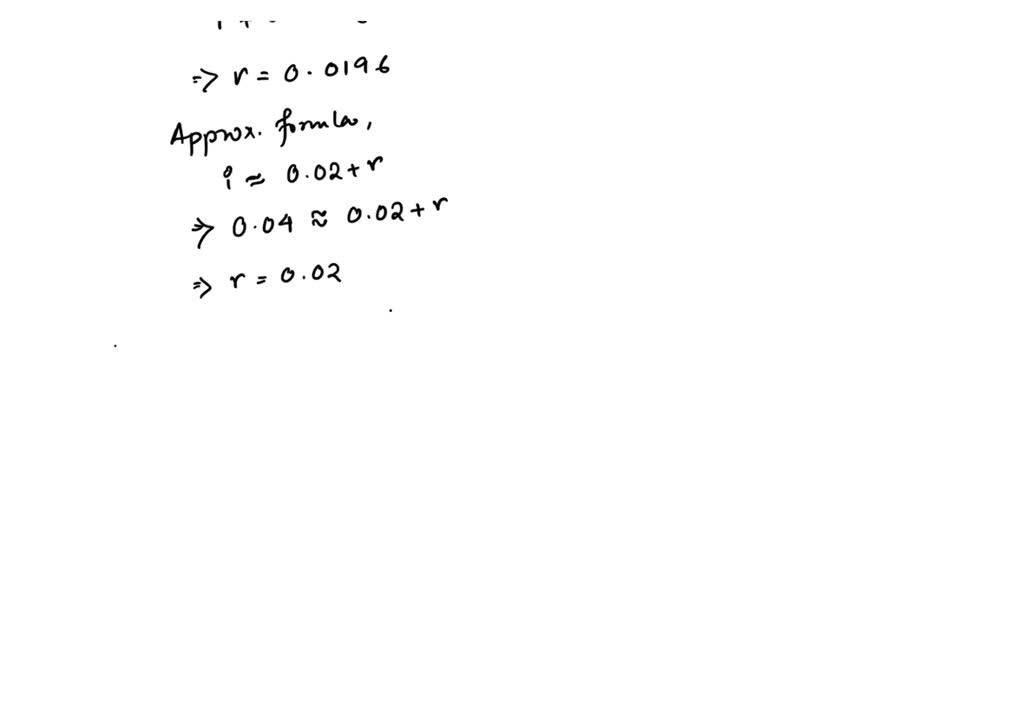 ⇒ r = 0.0196
Approx. formula,
i ≈ 0.02 + r
⇒ 0.04 ≈ 0.02 + r
⇒ r = 0.02